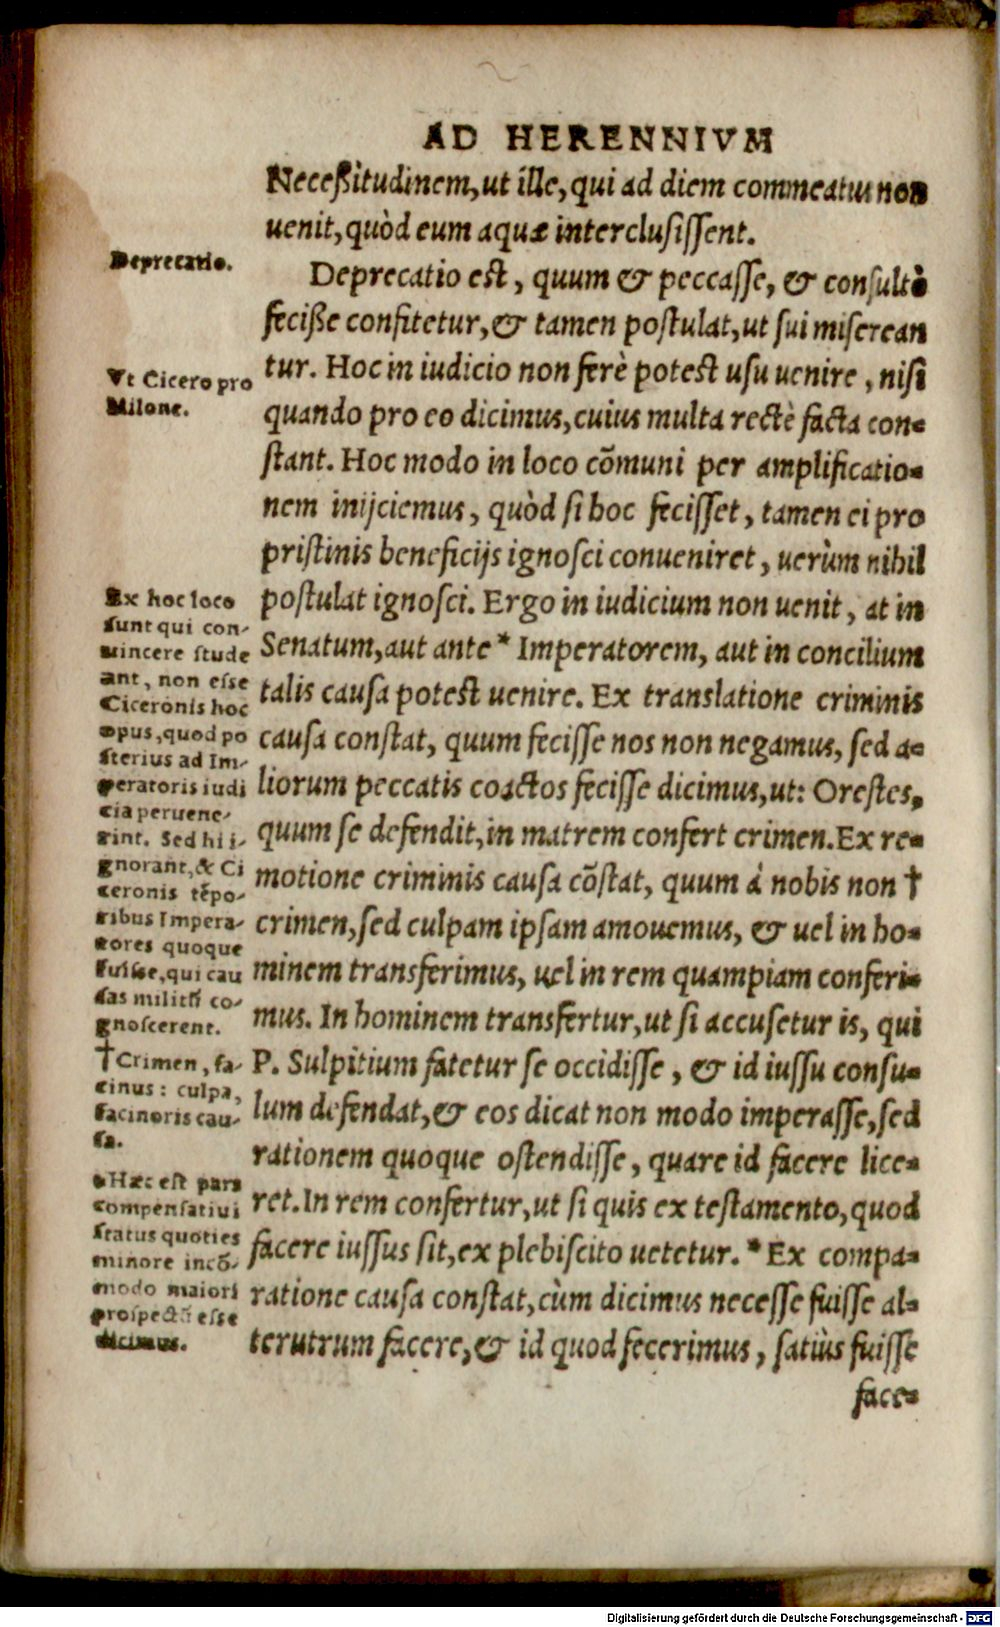 AD HERENNIVM
Neceßitudinem, ut ille, qui ad diem commeatus non
uenit, quòd eum aquæ interclusissent.
Deprecatio est, quum & peccasse, & consultò
feciße confitetur, & tamen postulat, ut sui miserean
tur. Hoc in iudicio non ferè potest usu uenire, nisi
quando pro eo dicimus, cuius multa rectè facta con-
stant. Hoc modo in loco cõmuni per amplificatio-
nem inijciemus, quòd si hoc fecisset, tamen ei pro
pristinis beneficijs ignosci conueniret, uerùm nihil
postulat ignosci. Ergo in iudicium non uenit, at in
Senatum, aut ante * Imperatorem, aut in concilium
talis causa potest uenire. Ex translatione criminis
causa constat, quum fecisse nos non negamus, sed a-
liorum peccatis coactos fecisse dicimus, ut: Orestes,
quum se defendit, in matrem confert crimen. Ex re-
motione criminis causa cõstat, quum à nobis non †
crimen, sed culpam ipsam amouemus, & uel in ho-
minem transferimus, uel in rem quampiam conferi-
mus. In hominem transfertur, ut si accusetur is, qui
P. Sulpitium fatetur se occidisse, & id iussu consu-
lum defendat, & eos dicat non modo imperasse, sed
rationem quoque ostendisse, quare id facere lice-
ret. In rem confertur, ut si quis ex testamento, quod
facere iussus sit, ex plebiscito uetetur. * Ex compa-
ratione causa constat, cùm dicimus necesse fuisse al-
terutrum facere, & id quod fecerimus, satiùs fuisse
face-
Deprecatio.
Vt Cicero pro
Milone.
Ex hoc loco
sunt qui con-
uincere stude
ant, non esse
Ciceronis hoc
opus, quod po
sterius ad Im-
peratoris iudi
cia peruene-
rint. Sed hi i-
gnorant, & Ci
ceronis tẽpo-
ribus Impera-
tores quoque
fuisse, qui cau
sas militũ co-
gnoscerent.
† Crimen, fa-
cinus: culpa,
facinoris cau-
sa.
* Hæc est pars
compensatiui
status quoties
minore incõ-
modo maiori
prospectũ esse
dicimus.
Digitalisierung gefördert durch die Deutsche Forschungsgemeinschaft - DFG